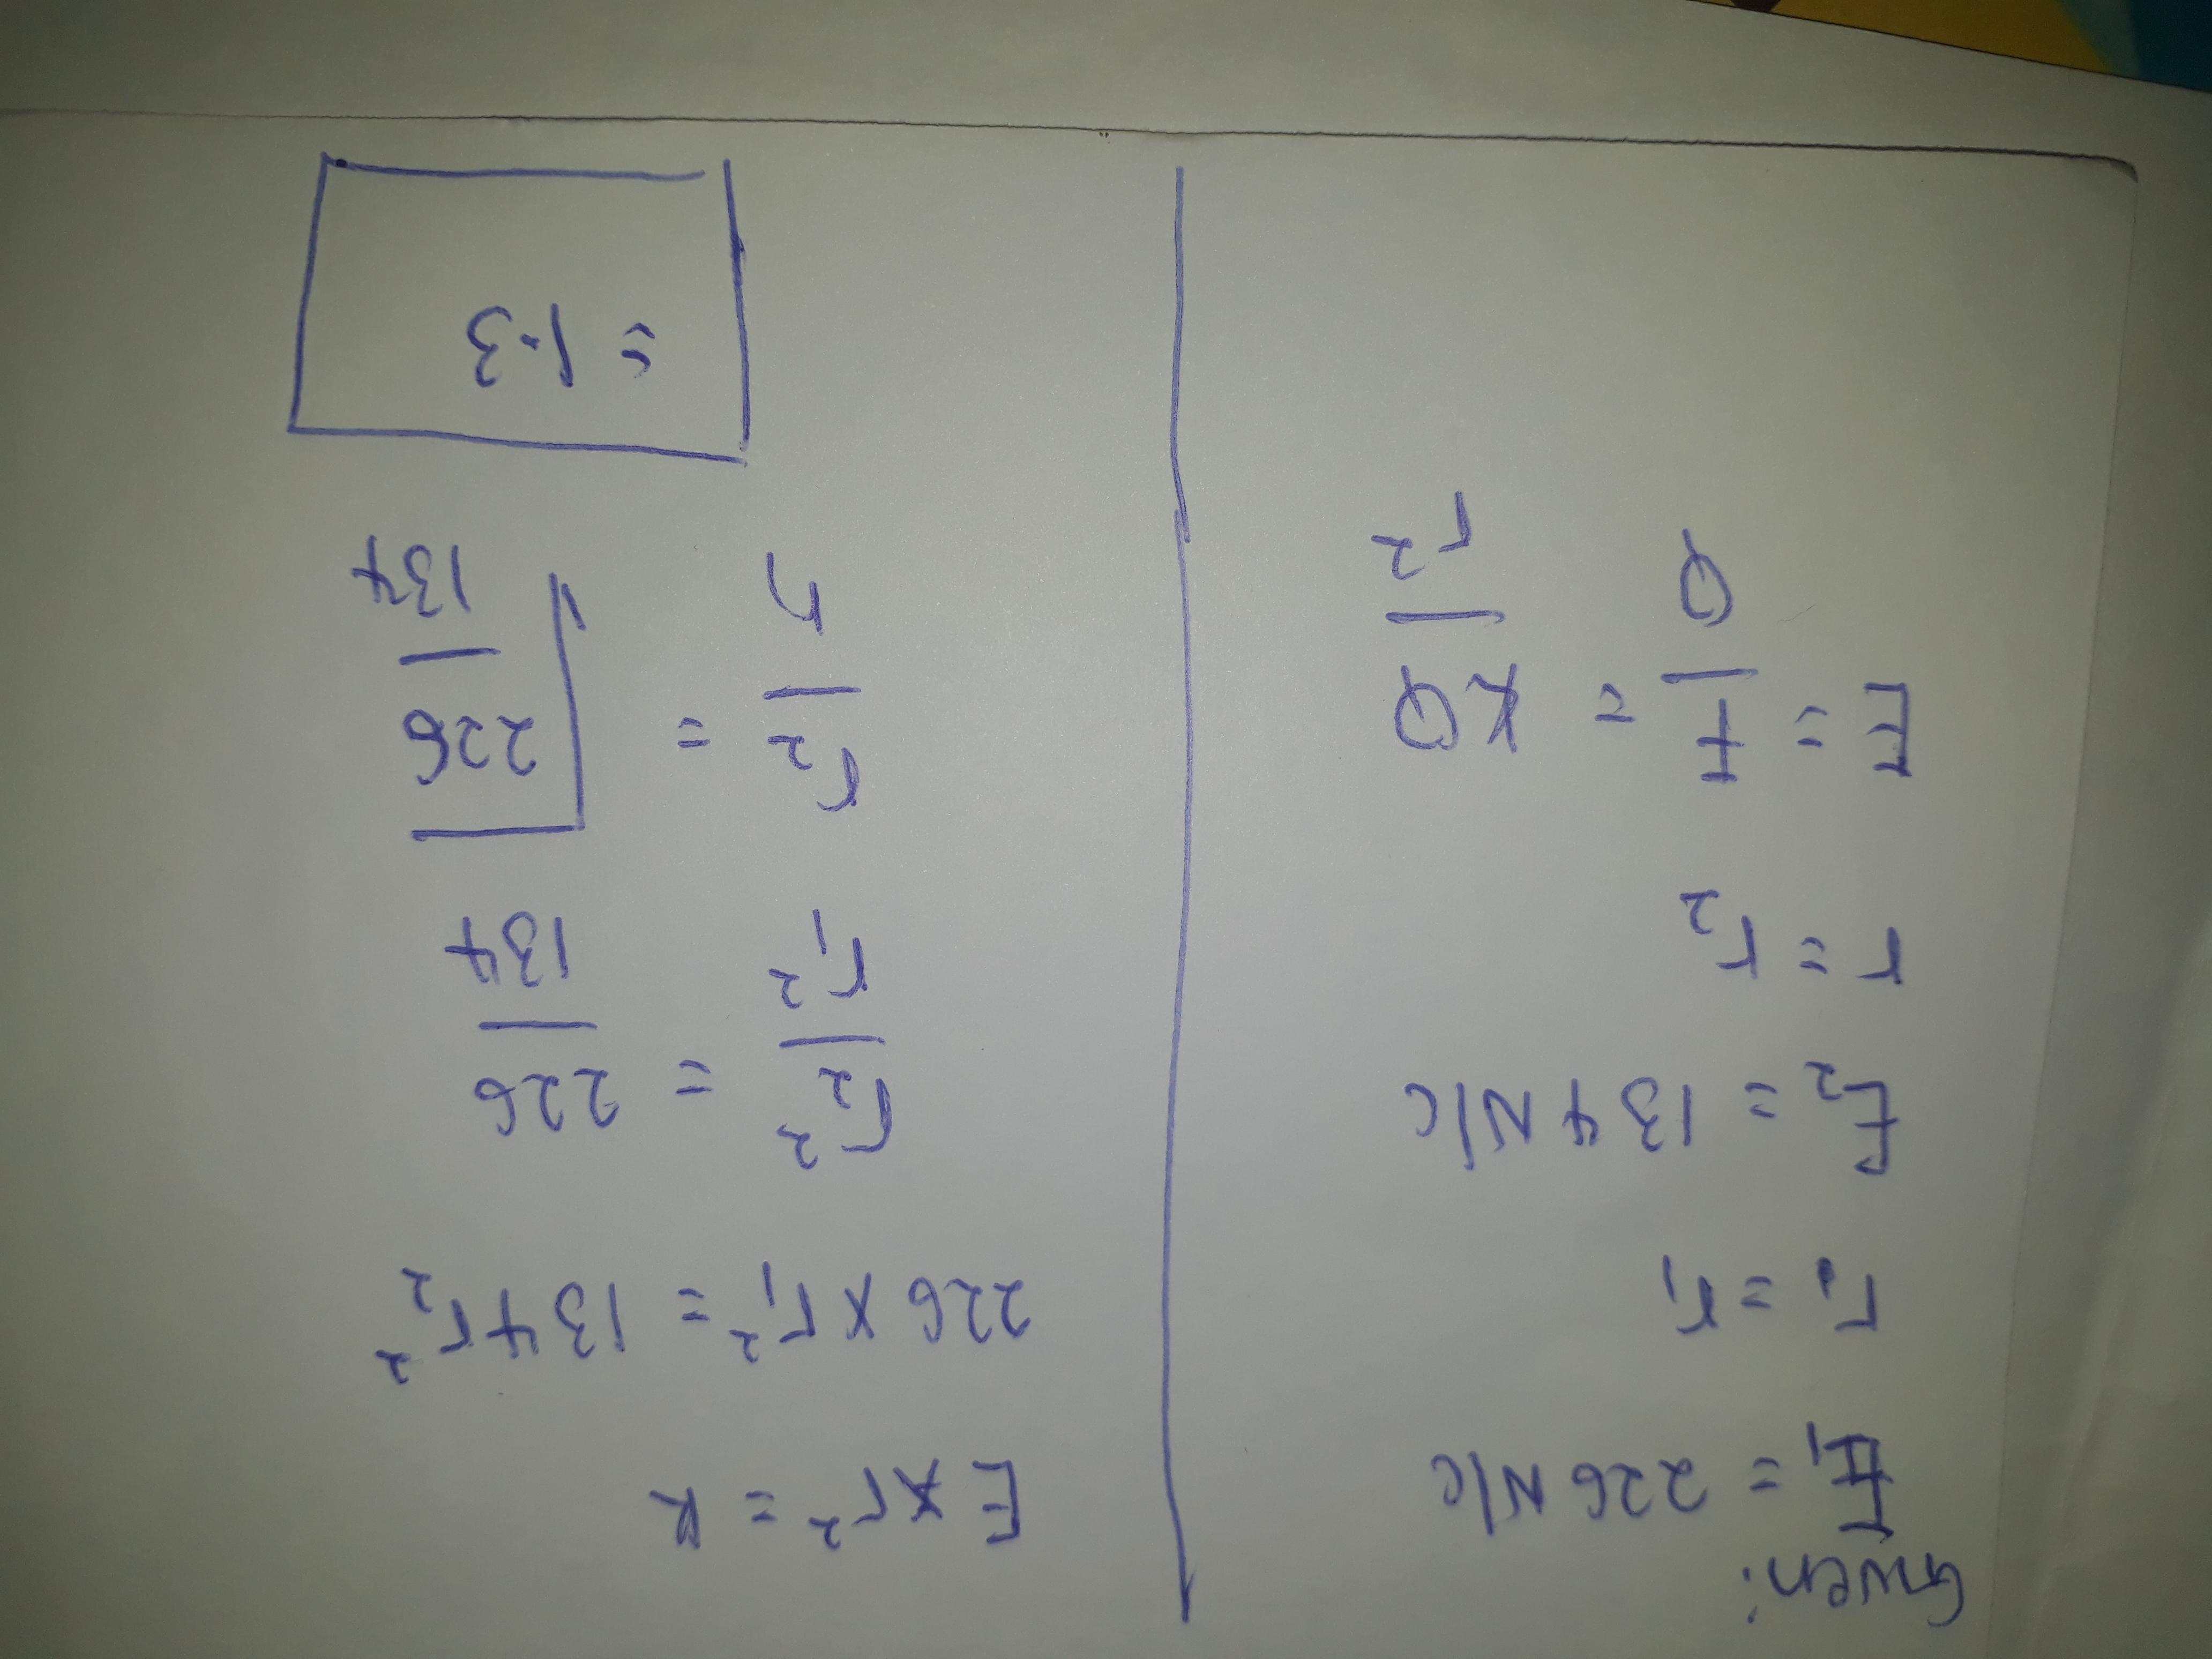 Given:
E₁ = 226 N/C
r₁ = r₁
E₂ = 134 N/C
r = r₂
E = F/Q = KQ/r²
E × r² = k
226 × r₁² = 134 r₂²
r₂²/r₁² = 226/134
r₂/r₁ = √226/134
= 1.3